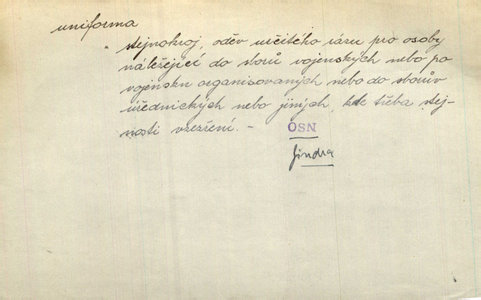 uniforma
stejnokroj, oděv určitého rázu pro osoby
náležející do sborů vojenských nebo po
vojensku organisovaných nebo do sborův
úřednických nebo jiných, kde třeba stej-
nosti vzezření. –
OSN
Jindra